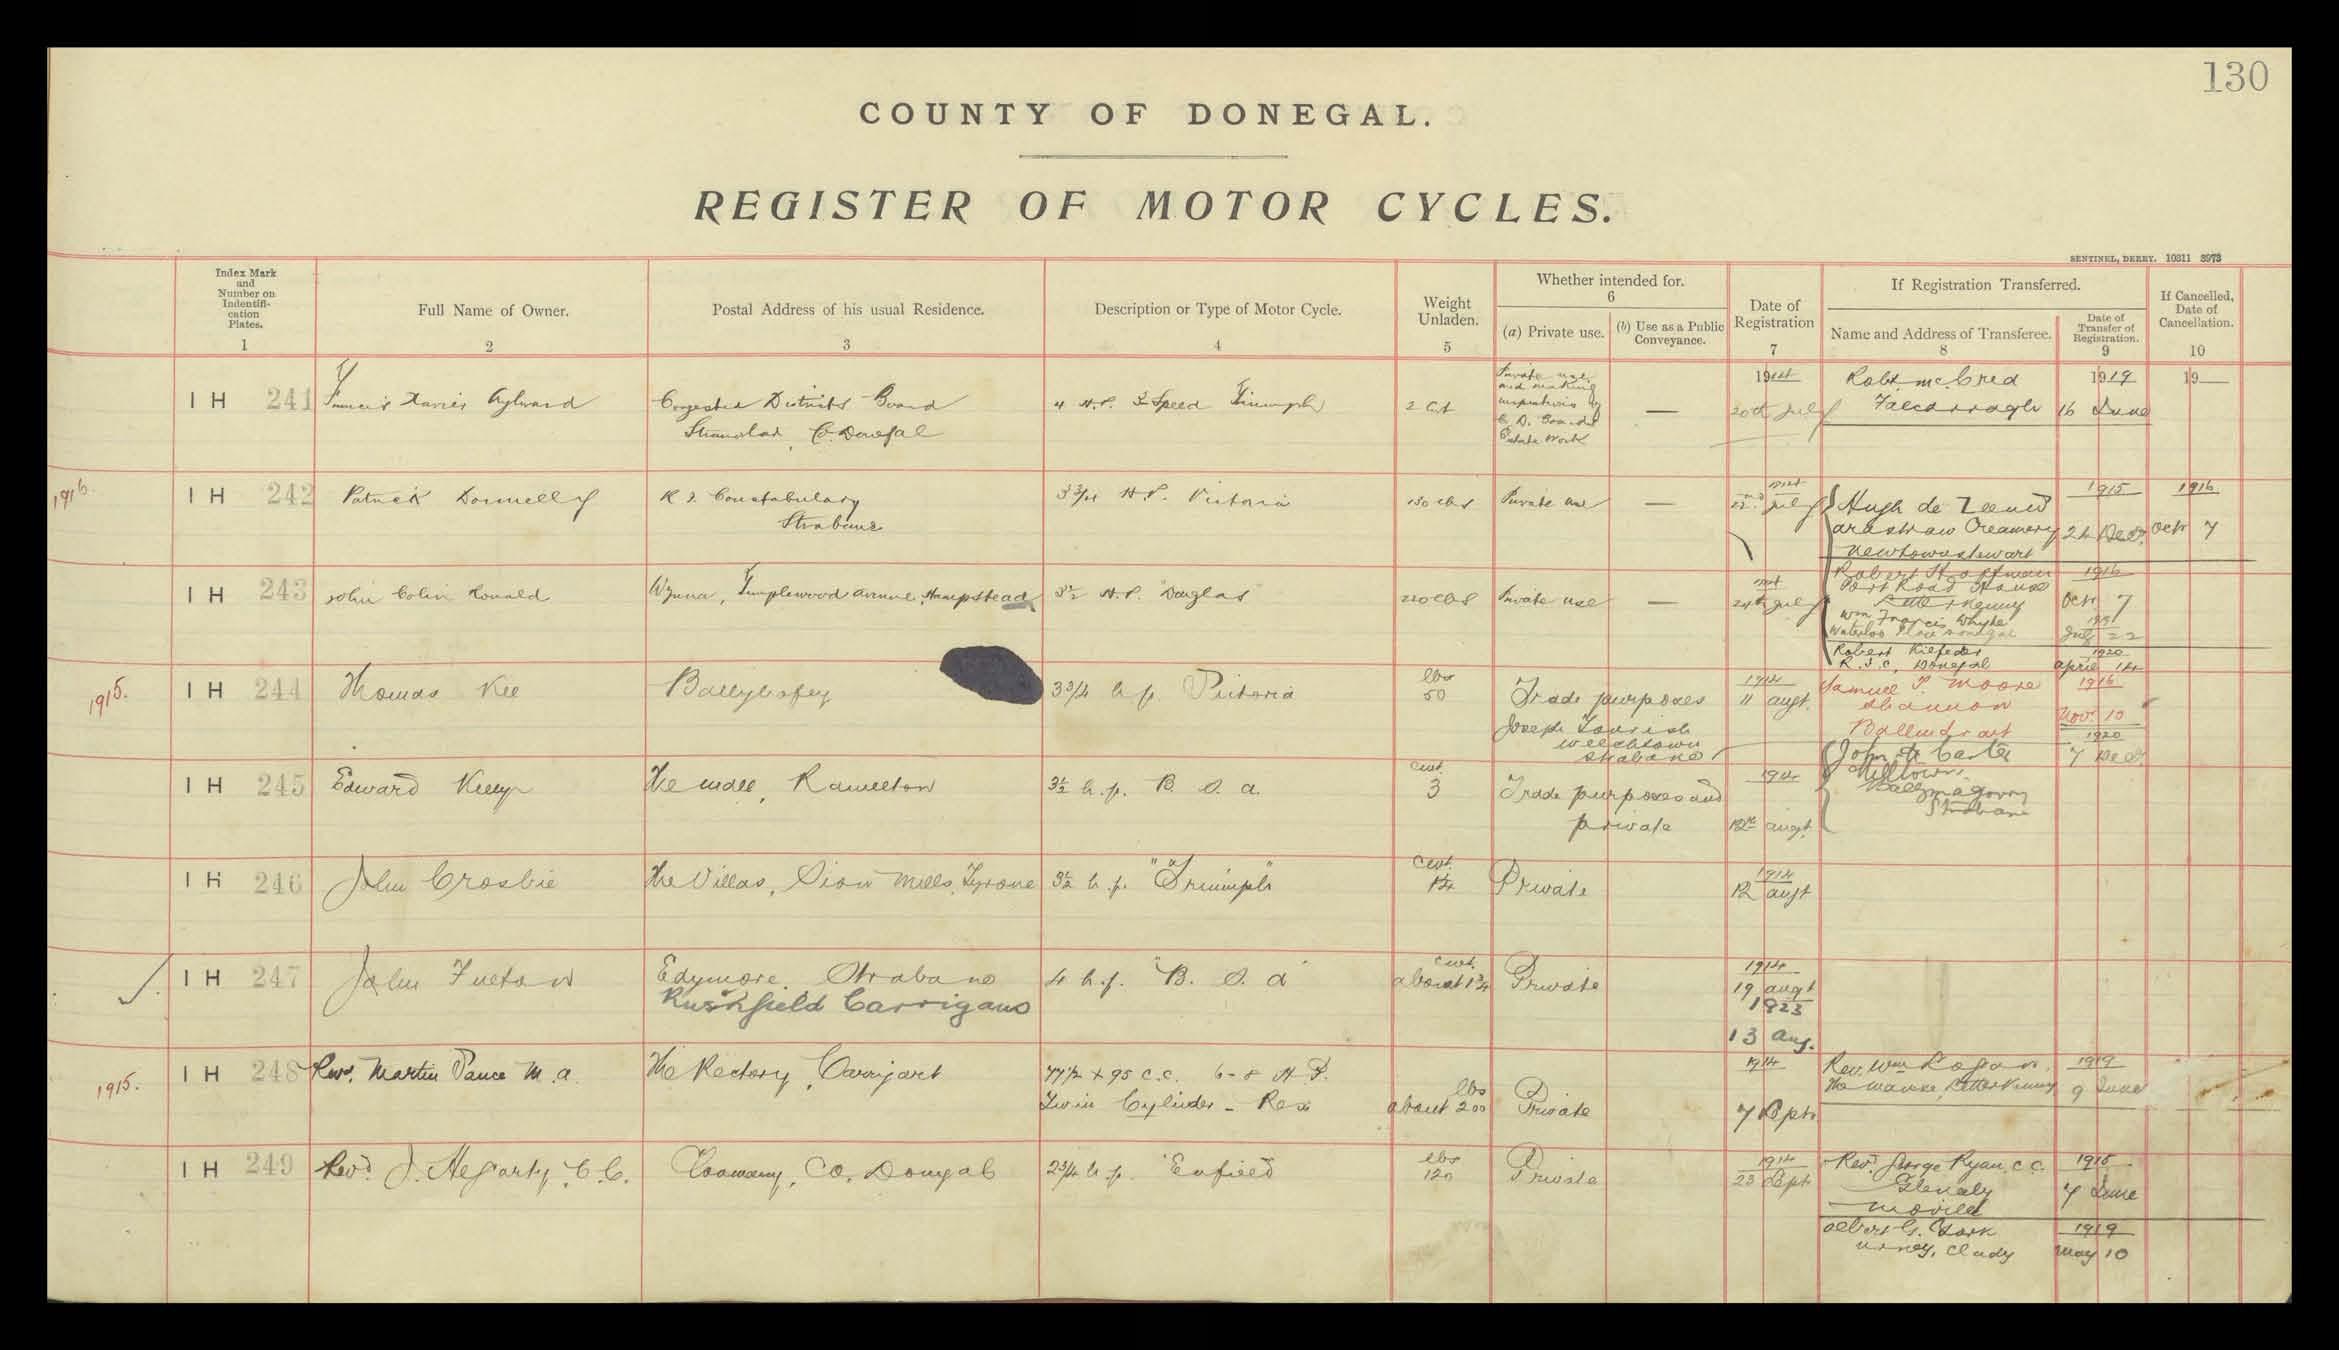 130
COUNTY OF DONEGAL.
REGISTER OF MOTOR CYCLES.
SENTINEL, DERRY. 10311 8973
Index Mark
and
Number on
Indentifi-
cation
Plates.
1
Full Name of Owner.
2
Postal Address of his usual Residence.
3
Description or Type of Motor Cycle.
4
Weight
Unladen.
5
Whether intended for.
6
(a) Private use.
(b) Use as a Public
Conveyance.
Date of
Registration
7
If Registration Transferred.
Name and Address of Transferee.
8
Date of
Transfer of
Registration.
9
If Cancelled,
Date of
Cancellation.
10
IH 241 Francis Xavier Aylward
Congested Districts Board
Stranorlar, Co. Donegal
4 H.P. 3 Speed Triumph
2 Cwt
Private use
and making
inspections of
C. D. Boards
Estate Work
—
1914
20th July
Robt. McCred
Falcarragh
1919
16 June
19
1916
IH 242 Patrick Donnelly
R.I. Constabulary
Strabane
3 3/4 H.P. Victoria
130 lbs
Private use
—
22nd July
Hugh de Zeeuw
Ardstraw Creamery
Newtownstewart
1915
24 Decr.
1916
Octr 7
IH 243 John Colin Ronald
Wynna, Templewood Avenue, Hampstead
3 1/2 H.P. Douglas
220 lbs
Private use
—
24th July
Robert Hoffman
Port Road House
Letterkenny
1916
Octr 7
Wm. Francis Whyte
Waterloo Place Donegal
July 22
Robert Kilfeder
R.I.C. Donegal
1920
April 14
1915.
IH 244 Thomas Kee
Ballybofey
3 3/4 h.p. Victoria
lbs
50
Trade purposes
1914
11 Augt.
Samuel P. Moore
Shannon
Ballindrait
1916
Nov. 10
Joseph Tourish
Strabane
John A Carter
Milltown,
Ballymagorry
Strabane
1920
7 Decr
IH 245 Edward Kelly
The Mall, Ramelton
3 1/2 h.p. B. S. A.
Cwt.
3
Trade purposes and
private
1914
12th Augt.
IH 246 John Crosbie
The Villas, Sion Mills, Tyrone
3 1/2 h.p. "Triumph"
Cwt.
1 3/4
Private
1914
12 Augt
IH 247 John Fulton
Edymore, Strabane
Rushfield Carrigans
4 h.p. "B. S. A"
Cwt.
about 1 3/4
Private
1914
19 Augt
1923
13 Aug.
1915.
IH 248 Revd. Martin Vance M.A.
The Rectory, Carrigart
77 1/2 x 95 c.c. 6-8 H.P.
Twin Cylinder - Rex
lbs
about 200
Private
1914
7 Septr.
Rev. Wm Logan.
The Manse, Letterkenny
1919
9 June
IH 249 Revd. J. Hegarty, C.C.
Cloamany, Co. Donegal
2 3/4 h.p. Enfield
lbs
120
Private
1914
23 Septr
Revd. George Ryan, C.C.
Glenely
Moville
1915
7 June
Albert G. Clark
Urney, Clady
1919
May 10